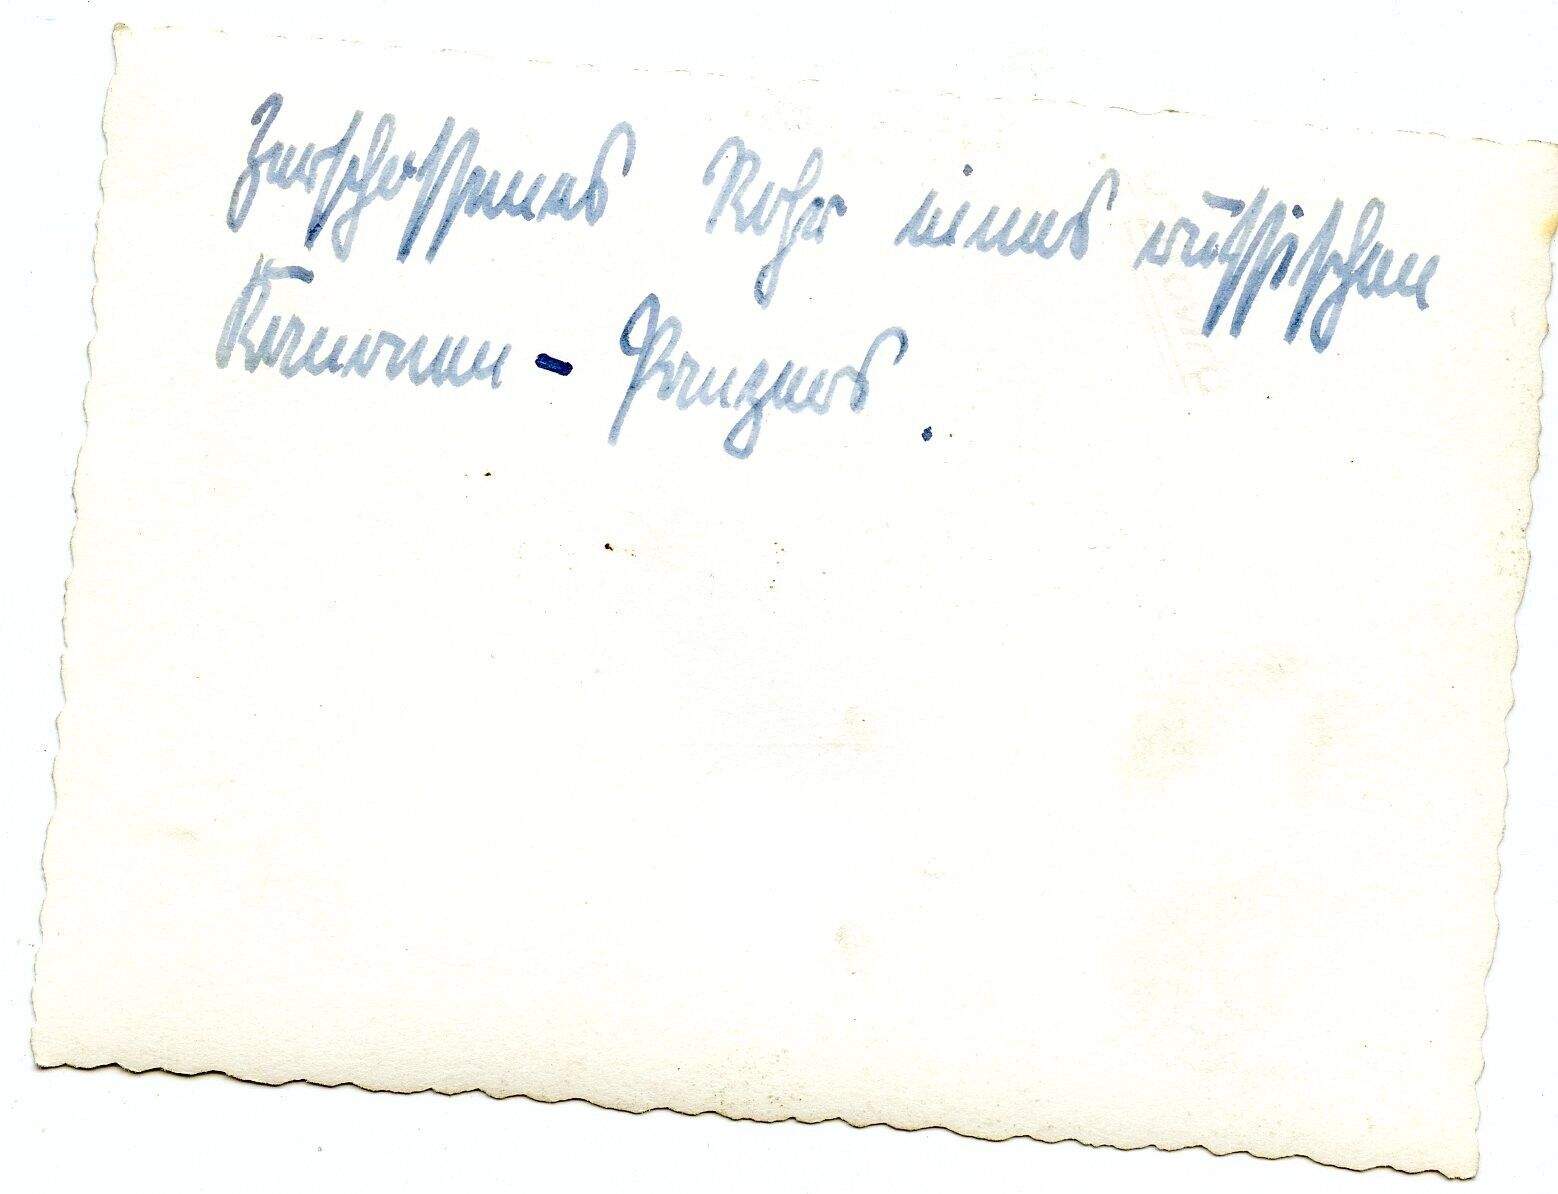 Zerschossenes Rohr eines russischen
Kanonen - Panzers.